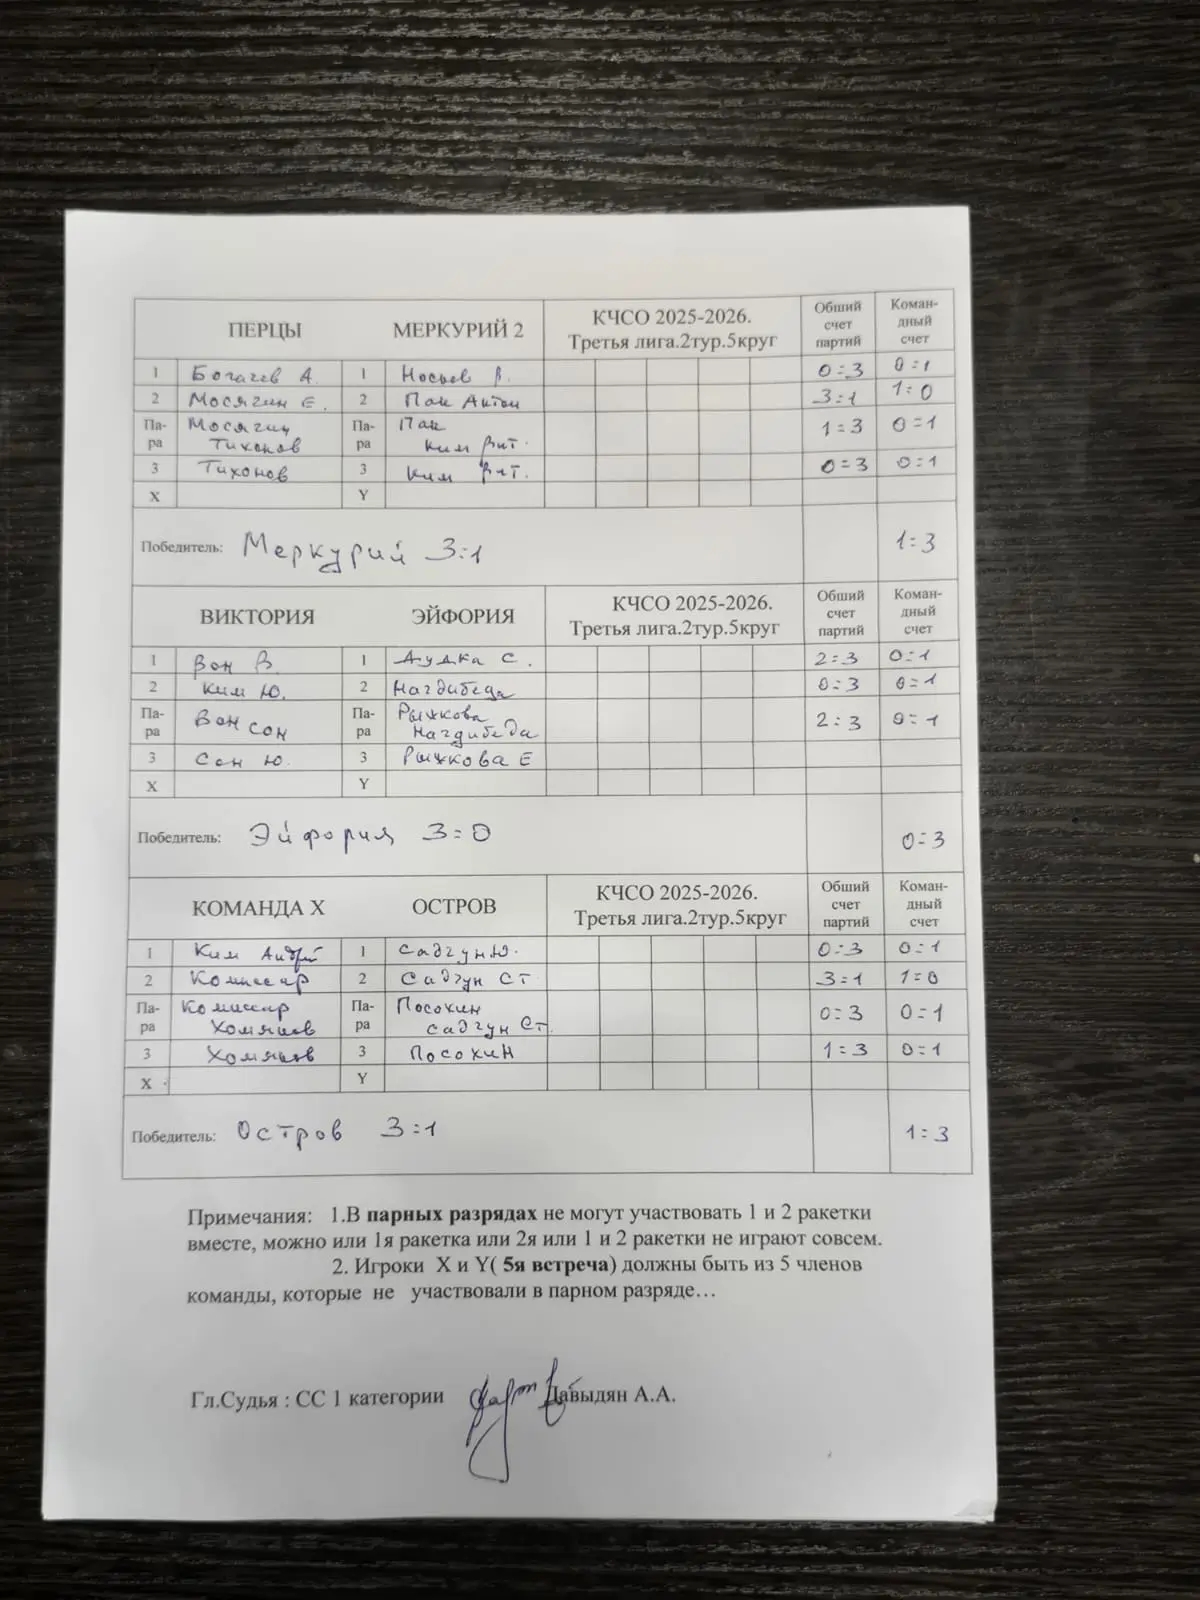 ПЕРЦЫ МЕРКУРИЙ 2 КЧСО 2025-2026. Третья лига.2тур.5круг Обший счет партий Коман-дный счет
1 Богачев А. 1 Носьев В. 0:3 0=1
2 Мосягин Е. 2 Пак Антон 3=1 1=0
Па-ра Мосягин Па-ра Пак 1=3 0=1
Тихонов Ким Вит.
3 Тихонов 3 Ким Вит. 0=3 0=1
X Y
Победитель: Меркурий 3:1 1=3
ВИКТОРИЯ ЭЙФОРИЯ КЧСО 2025-2026. Третья лига.2тур.5круг Обший счет партий Коман-дный счет
1 Вон В. 1 Дудка С. 2=3 0=1
2 Ким Ю. 2 Нагдибеда 0=3 0=1
Па-ра Вон Сон Па-ра Рыжкова 2=3 0=1
Нагдибеда
3 Сон Ю. 3 Рыжкова Е
X Y
Победитель: Эйфория 3=0 0=3
КОМАНДА X ОСТРОВ КЧСО 2025-2026. Третья лига.2тур.5круг Обший счет партий Коман-дный счет
1 Ким Андрей 1 Садгун Ю. 0=3 0=1
2 Комиссар 2 Садгун Ст 3=1 1=0
Па-ра Комиссар Па-ра Посохин 0=3 0=1
Хомяков Садгун Ст.
3 Хомяков 3 Посохин 1=3 0=1
X Y
Победитель: Остров 3:1 1=3
Примечания: 1.В парных разрядах не могут участвовать 1 и 2 ракетки
вместе, можно или 1я ракетка или 2я или 1 и 2 ракетки не играют совсем.
2. Игроки X и Y( 5я встреча) должны быть из 5 членов
команды, которые не участвовали в парном разряде…
Гл.Судья : СС 1 категории Давыдян А.А.